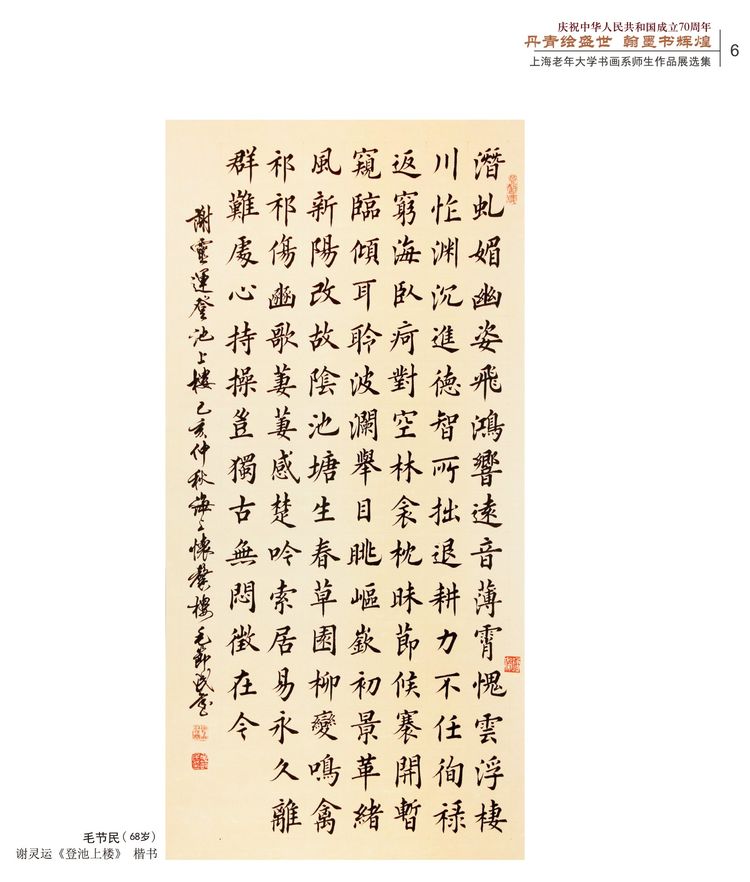 庆祝中华人民共和国成立70周年
丹青绘盛世 翰墨书辉煌
上海老年大学书画系师生作品展选集
6
潛虬媚幽姿飛鴻響遠音薄霄愧雲浮棲
川怍渊沉進德智所拙退耕力不任徇禄
返窮海臥疴對空林衾枕昧節候褰開暫
窺臨傾耳聆波瀾舉目眺嶇嶔初景革緒
風新陽改故陰池塘生春草園柳變鳴禽
祁祁傷豳歌萋萋感楚吟索居易永久離
群難處心持操豈獨古無悶徵在今
謝靈運登池上樓己亥仲秋海上懷馨樓毛節民書
毛节民（68岁）
谢灵运《登池上楼》 楷书